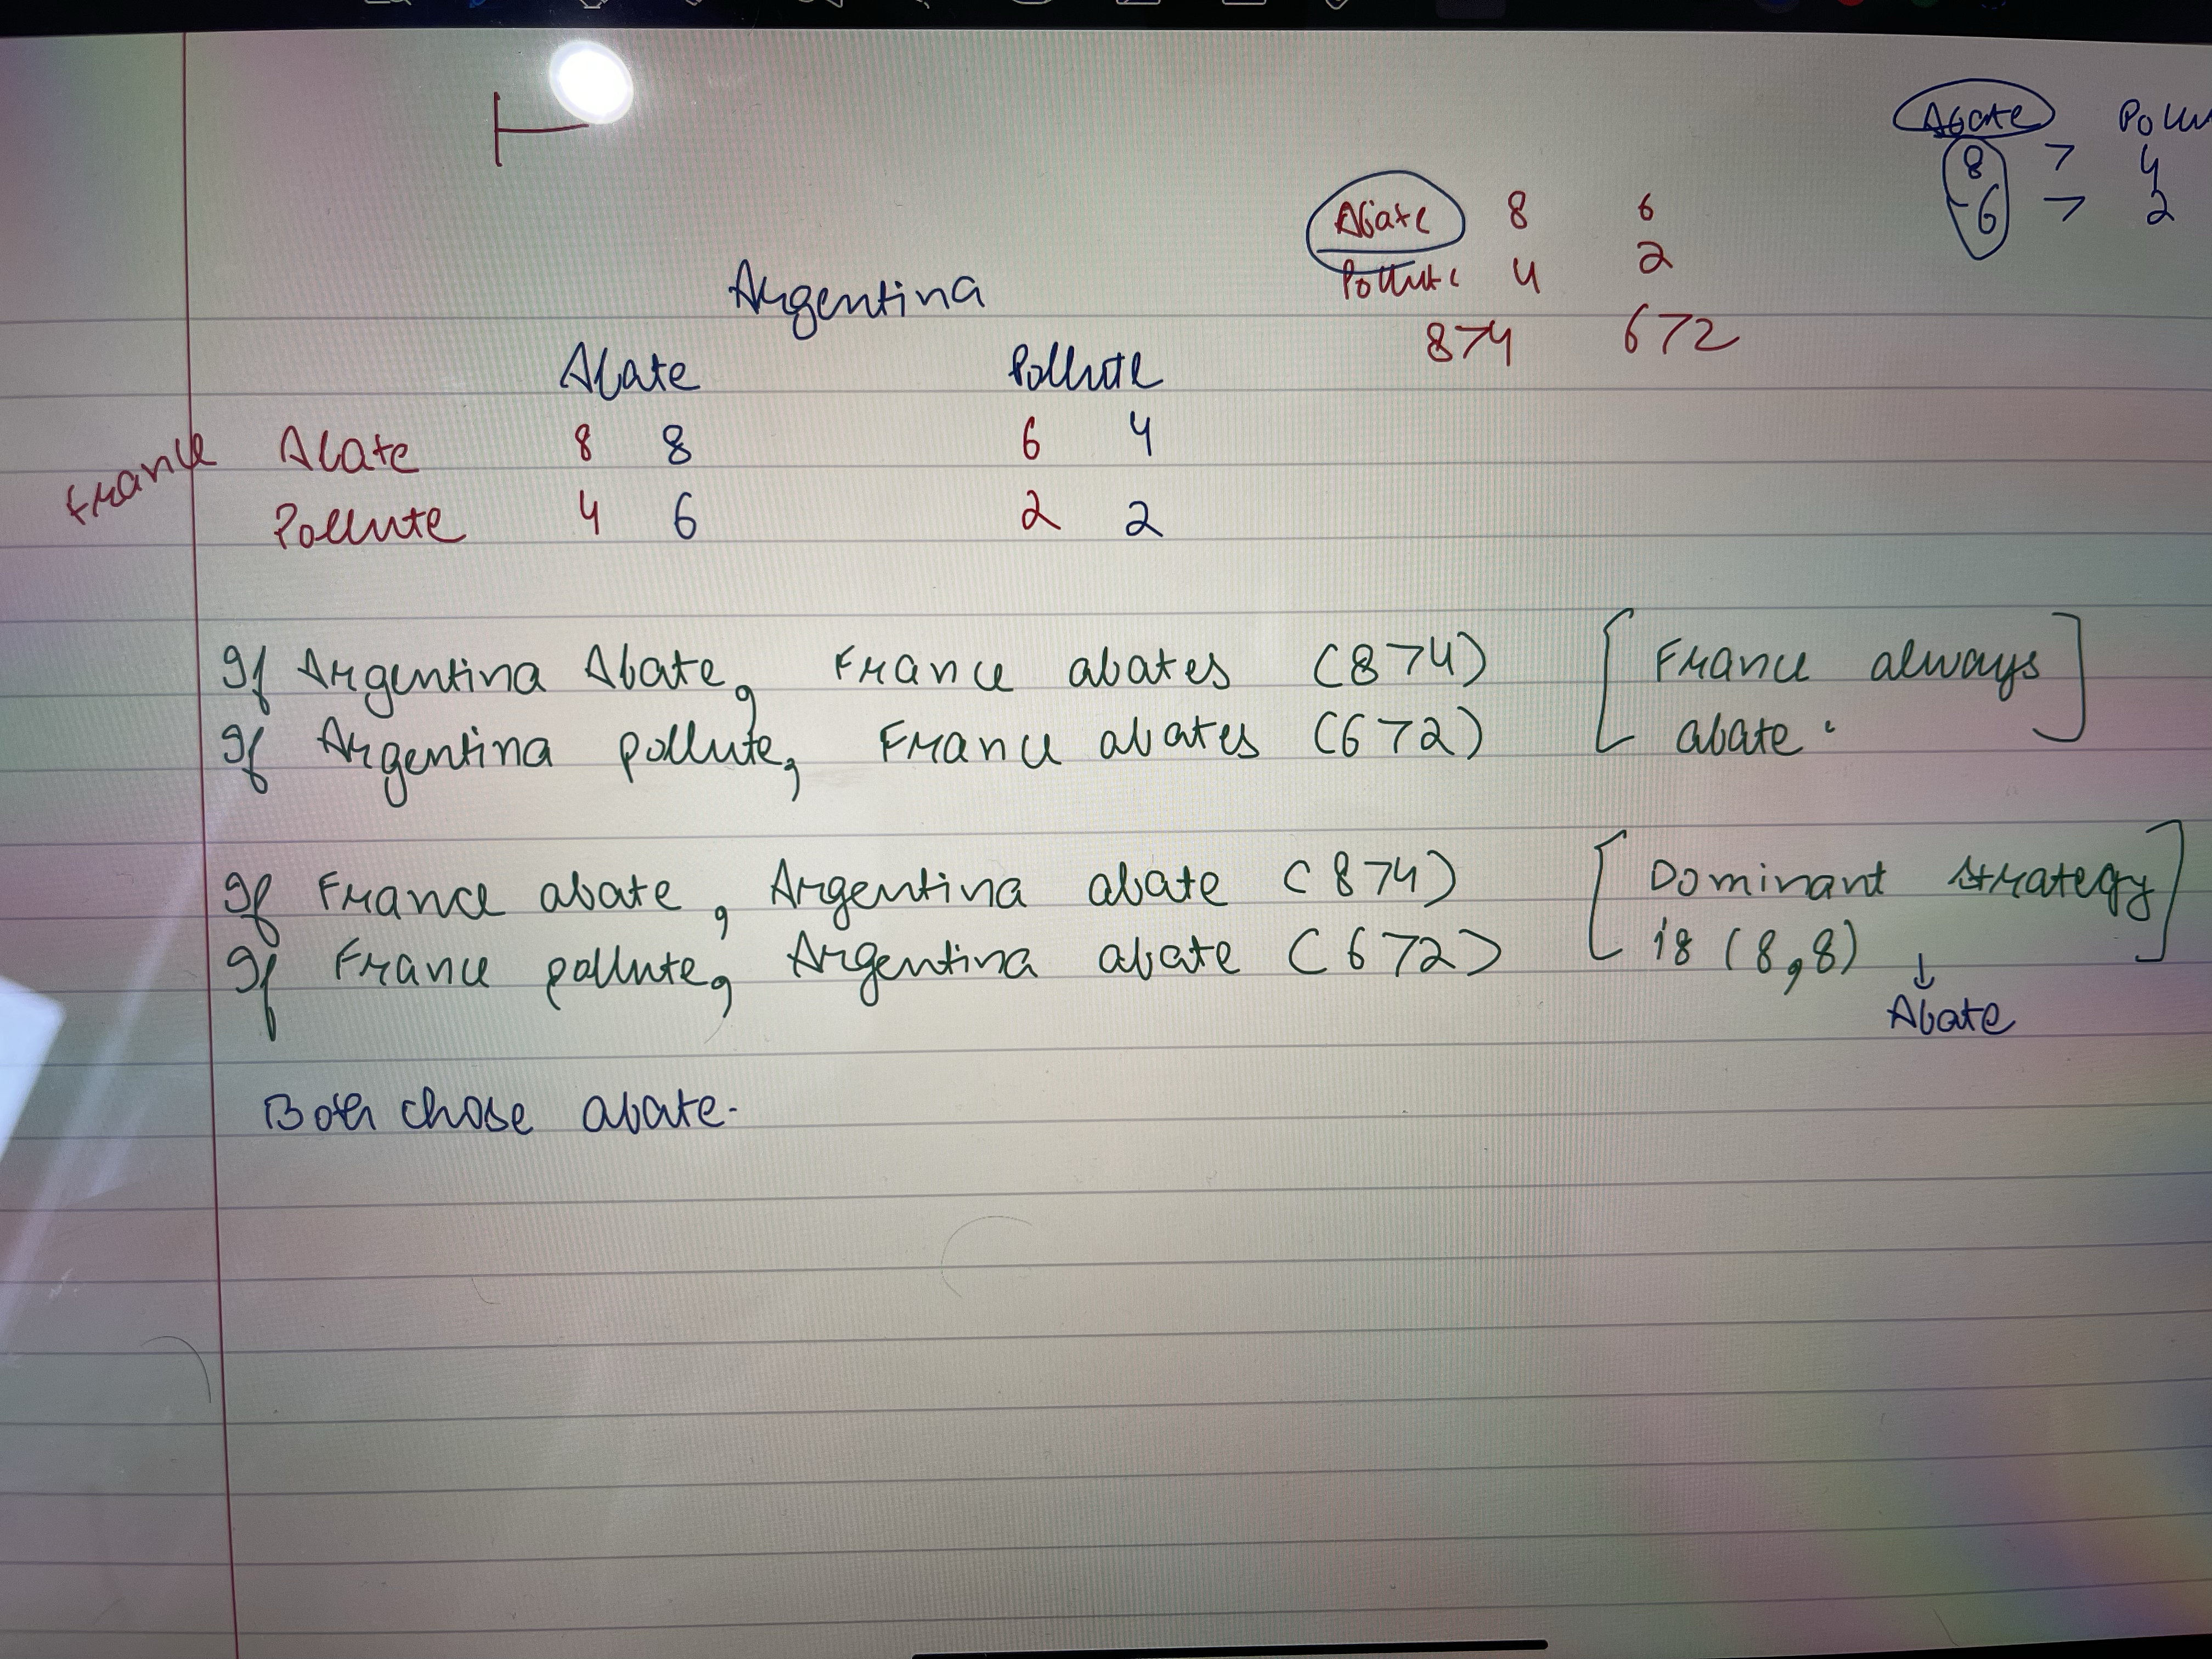 Abate Pollu
8 > 4
6 > 2
Abate 8 6
Pollute 4 2
8>4 6>2
Argentina
Abate Pollute
France Abate 8 8 6 4
Pollute 4 6 2 2
If Argentina Abate, France abates (8>4) [France always
If Argentina pollute, France abates (6>2) abate.]
If France abate, Argentina abate (8>4) [Dominant strategy
If France pollute, Argentina abate (6>2) is (8,8)]
↓
Abate
Both chose abate.